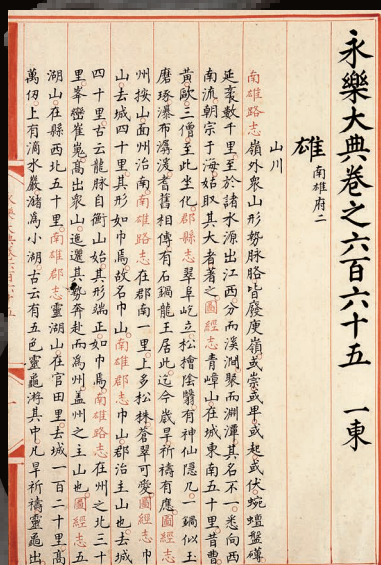 永樂大典卷之六百六十五　一東
雄 南雄府二
山川
南雄路志嶺外衆山形勢脉胳皆發庾嶺或崇或卑或起或伏蜿蟺盤礴
延袤數千里至於諸水源出江西分而溪澗聚而淵潭其名不一悉向西
南流朝宗于海姑取其大者著之圖經志青嶂山在城東南五十里昔曹
黄歐三僧至此坐化郡縣志翠阜屹立松檜陰翳有神仙隱几一鍋似玉
磨琢瀑布潺湲耆舊相傳有石鍋龍王居此迄今歲旱祈禱有應圖經志巾
州按山面州治南南雄路志在郡南一里上多松株蒼翠可愛圖經志巾
山去城四十里其形如巾焉故名巾山南雄郡志巾山郡治主山也去城
四十里古云龍脉自衡山始其形端正如巾焉南雄路志在州之北三十
里峯巒崔嵬高出衆山迤邐其勢奔赴而爲州盖州之主山也圖經志五
湖山在縣西北五十里南雄郡志靈湖山在官田里去城一百二十里高
萬仞上有滴水巖瀦爲小湖古云有五色靈龜游其中凡旱祈禱靈龜出